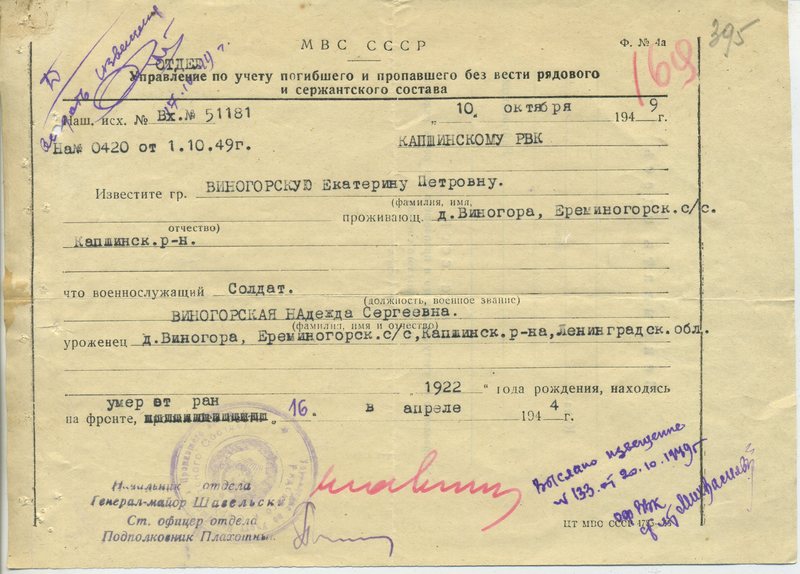 395
169
МВС СССР
Ф. № 4а
ОТДЕЛ
Управление по учету погибшего и пропавшего без вести рядового
и сержантского состава
Наш. исх. № Вх.№ 51181
„ 10 „ октября 194 9 г.
На№ 0420 от 1.10.49г.
КАПШИНСКОМУ РВК
Известите гр. ВИНОГОРСКУЮ Екатерину Петровну.
(фамилия, имя,
проживающ. д.Виногора, Ереминогорск.с/с.
отчество)
Капшинск.р-н.
что военнослужащий Солдат.
(должность, военное звание)
ВИНОГОРСКАЯ НАдежда Сергеевна.
(фамилия, имя и отчество)
уроженец д.Виногора, Ереминогорск.с/с,Капшинск.р-на,Ленинградск.обл.
„ 1922 “ года рождения, находясь
умер от ран
на фронте, „ 16. в апреле 194 4 г.
Выслано извещение
№ 133 от 20.10.1949г
Начальник отдела
Генерал-майор Шавельский
Ст. офицер отдела
Подполковник Плахотный
ЦТ МВС СССР